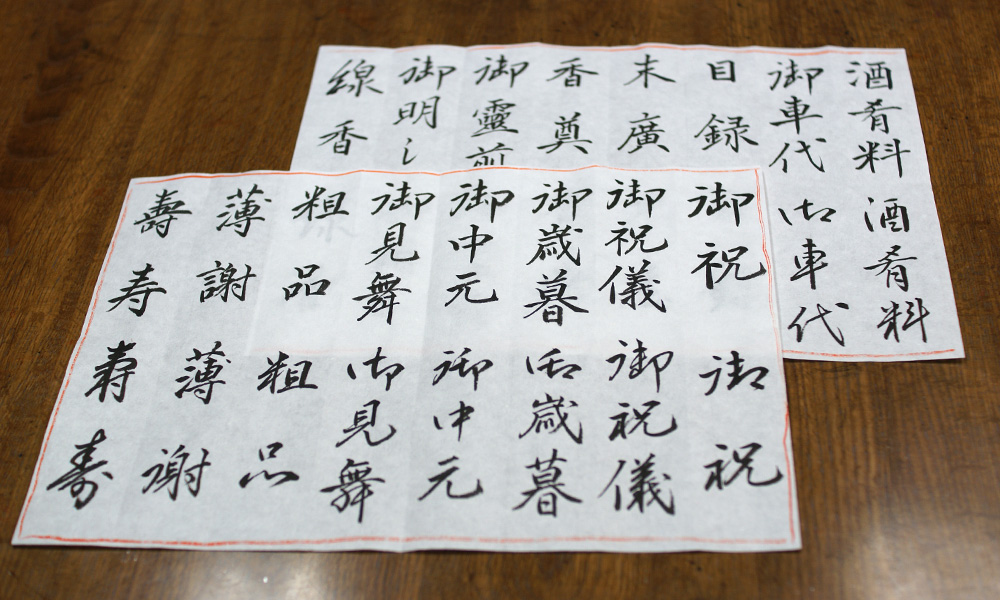 御祝 御祝
御祝儀 御祝儀
御歳暮 御歳暮
御中元 御中元
御見舞 御見舞
粗品 粗品
薄謝 薄謝
壽 寿 寿 寿
酒肴料 酒肴料
御車代 御車代
目録
末廣
香奠
御靈前
御明し
線香